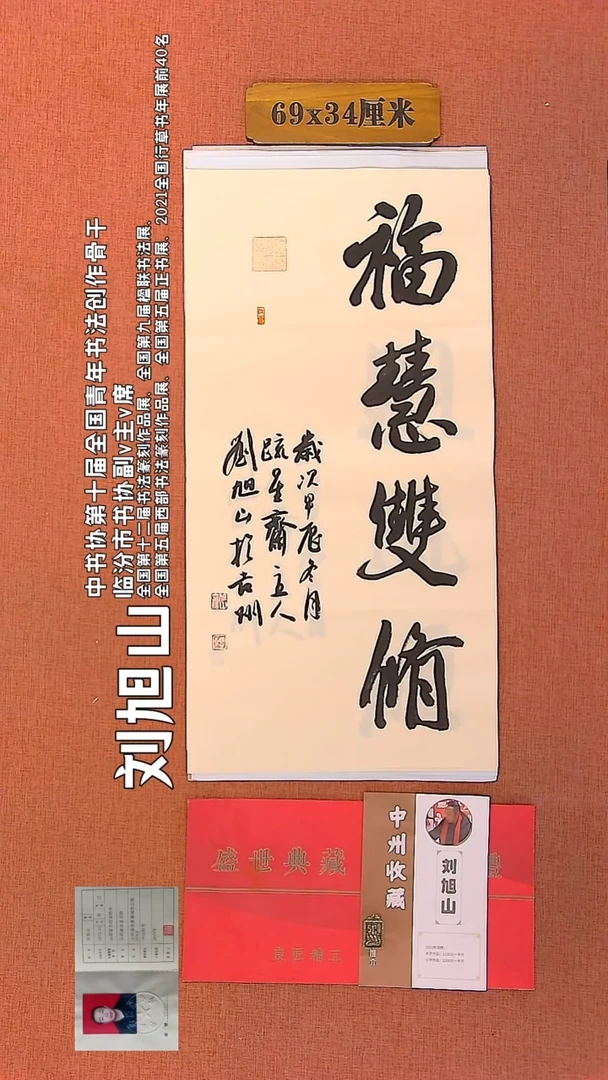 69x34厘米
福慧雙脩
歲次甲辰冬月
疏星齋主人
劉旭山於古州
中书协第十届全国青年书法创作骨干
临汾市书协副v主v席
全国第十二届书法篆刻作品展、全国第九届楹联书法展、
全国第五届西部书法篆刻作品展、全国第五届正书展、2021全国行草书年展前40名
刘旭山
盛世典藏
中州收藏
刘旭山